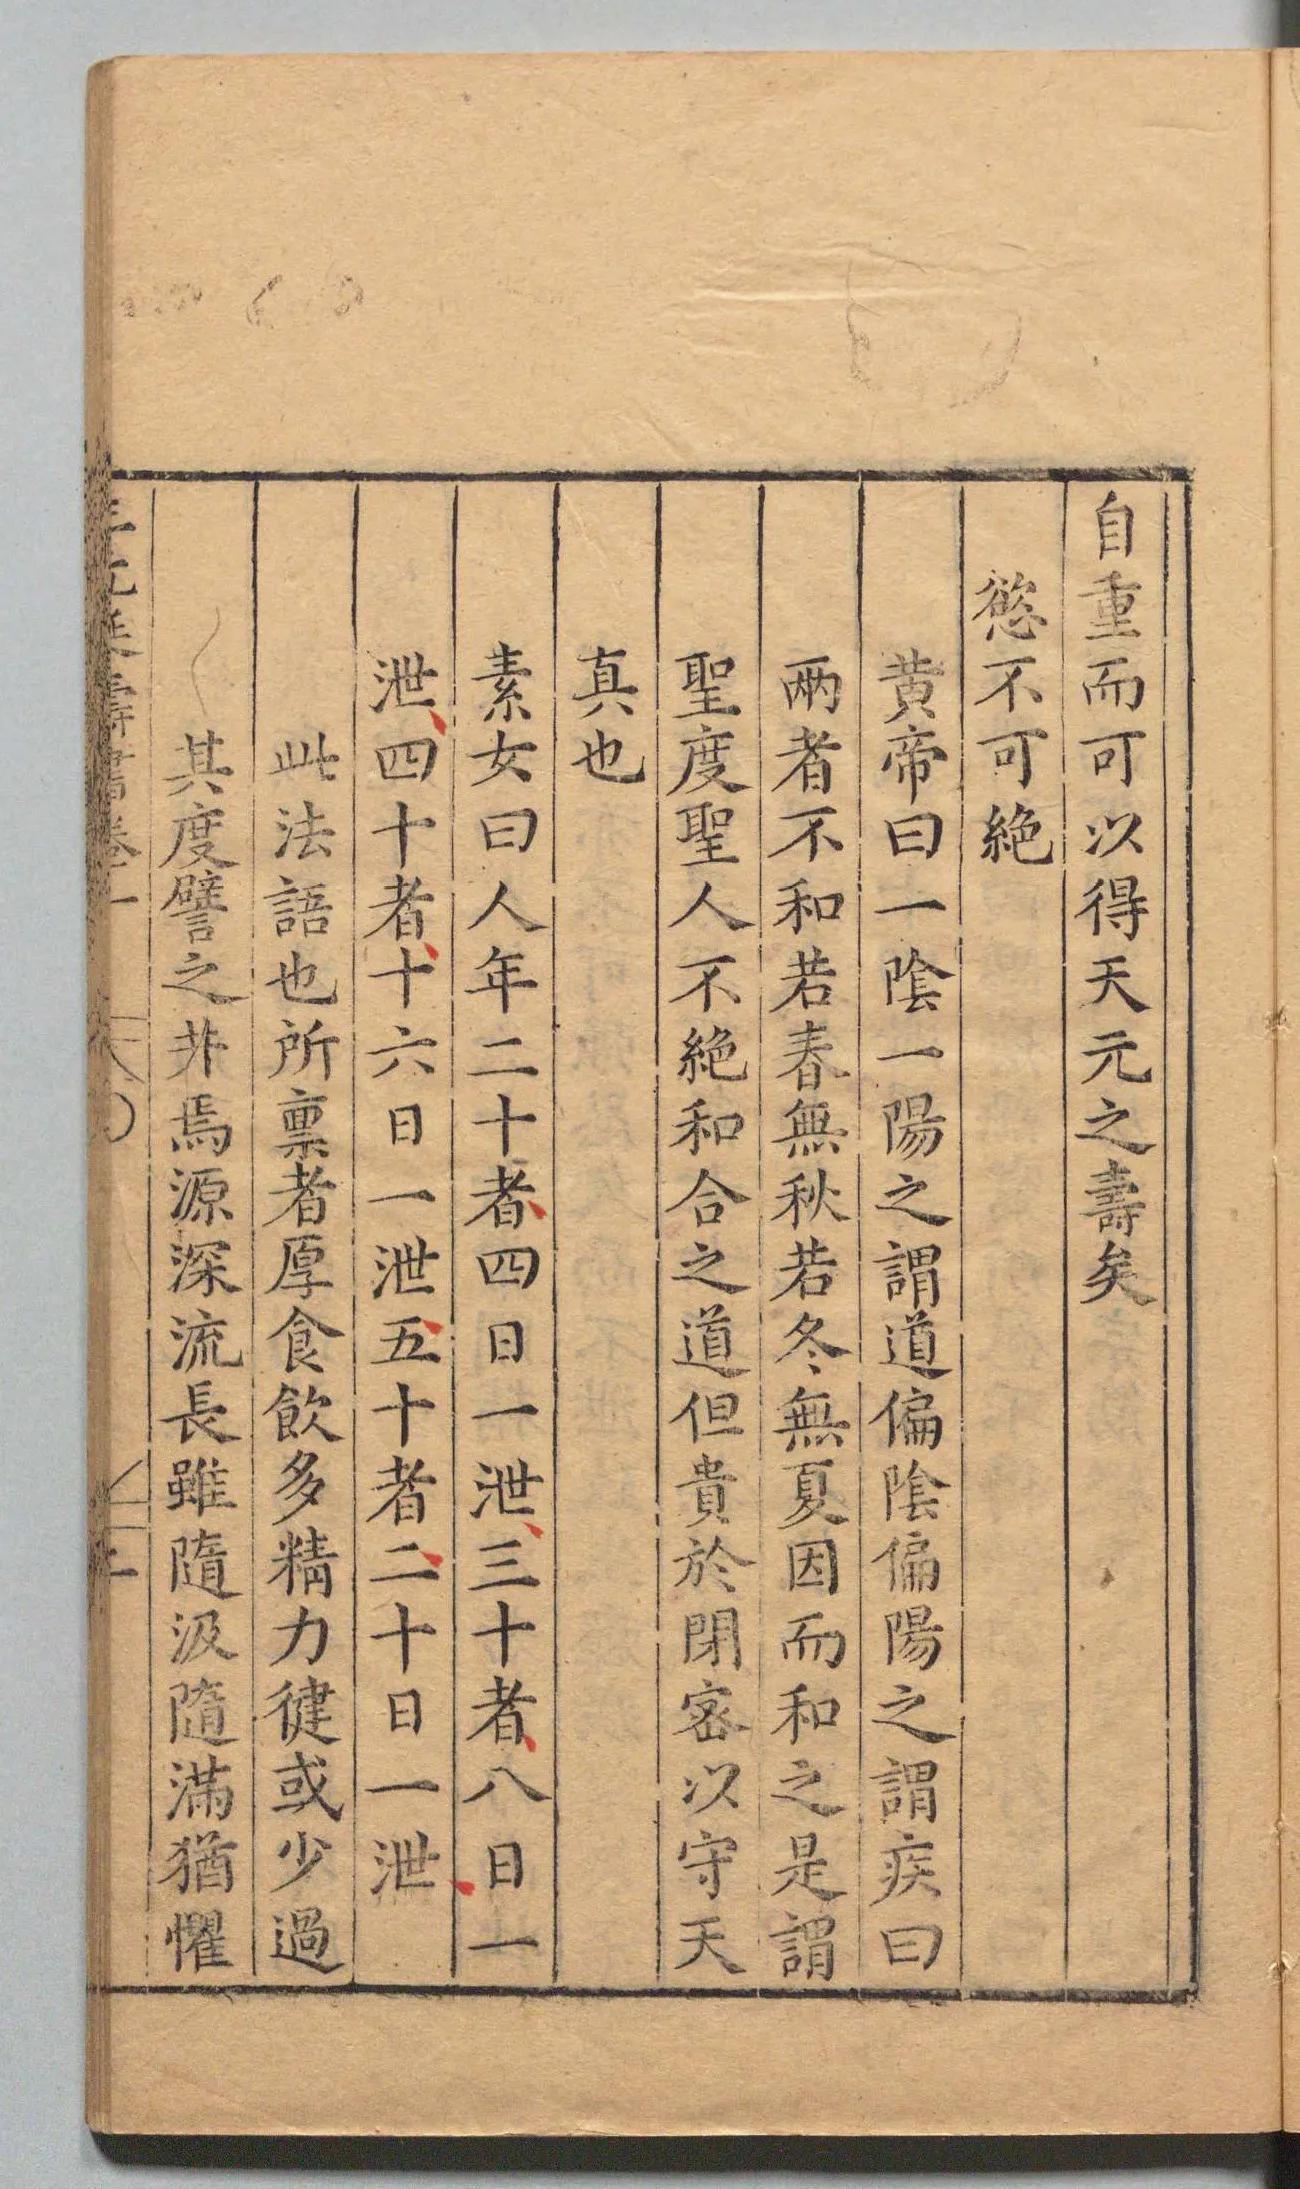 自重而可以得天元之壽矣
慾不可絶
黄帝曰一陰一陽之謂道偏陰偏陽之謂疾曰
兩者不和若春無秋若冬無夏因而和之是謂
聖度聖人不絶和合之道但貴於閉密以守天
真也
素女曰人年二十者四日一泄三十者八日一
泄四十者十六日一泄五十者二十日一泄
此法語也所禀者厚食飲多精力健或少過
其度譬之井焉源深流長雖隨汲隨滿猶懼
三元延壽書卷一